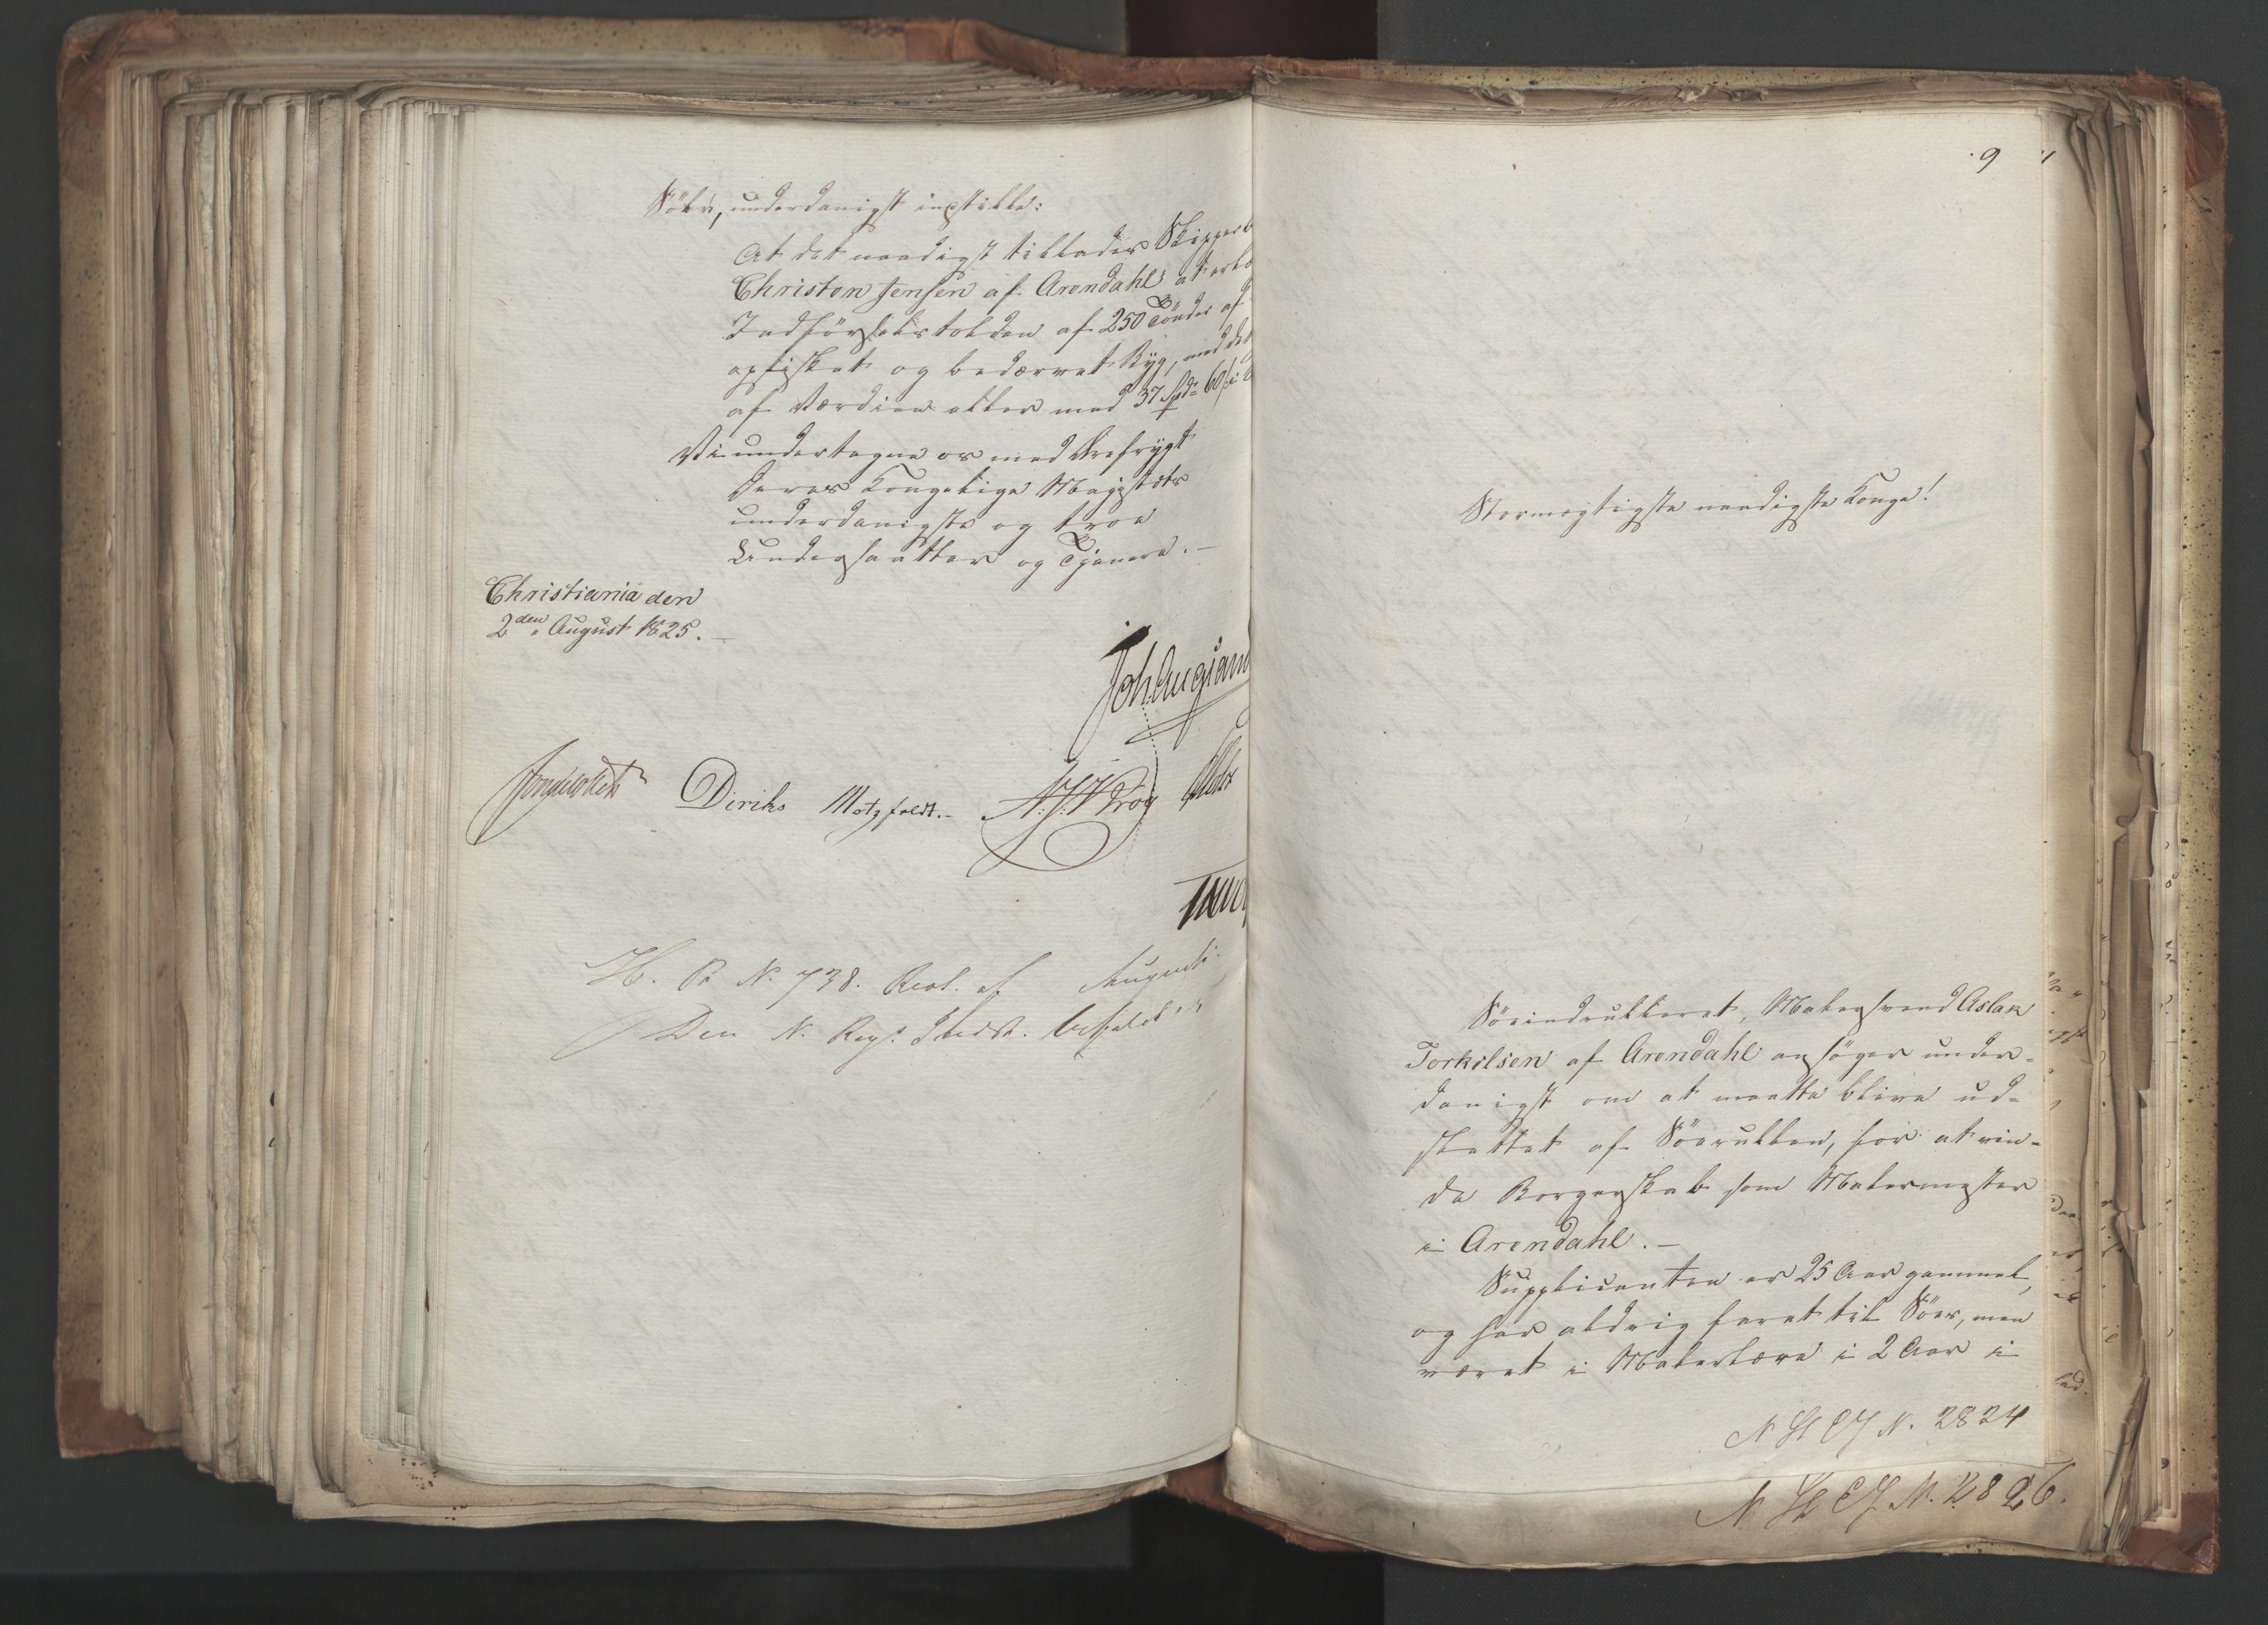 Følge, underdanigst indstille:
At det naadigst tillades Skipper
Christen Jensen af Arendahl at erlæ
Indførselstolden af 250 Tønder af
opfisket og bedærvet Byg, med
af Værdien eller med 37 Spd 60 s
Vi undertegne os med Ærefrygt
Deres Kongelige Majestæts
underdanigste og troe
Undersaatter og Tjenere. —
Christiania den
2den August 1825. —
Joh. Aug. Sand
Jonas Collett Diriks Motzfeldt. — Krog
H. R. No. 738. Resol. af Augusti
Den N. Reg. Indst. bifaldes
9
Stormægtigste naadigste Konge!
Søeindrulleret, Malersvend Aslak
Torkilsen af Arendahl ansøger under-
danigst om at maatte blive ud-
slettet af Søerullen, for at vin-
de Borgerskab som Malermester
i Arendahl. —
Supplicanten er 25 Aar gammel,
og har aldrig faret til Søes, men
været i Malerlære i 2 Aar i
N. 2824
N. 2826.